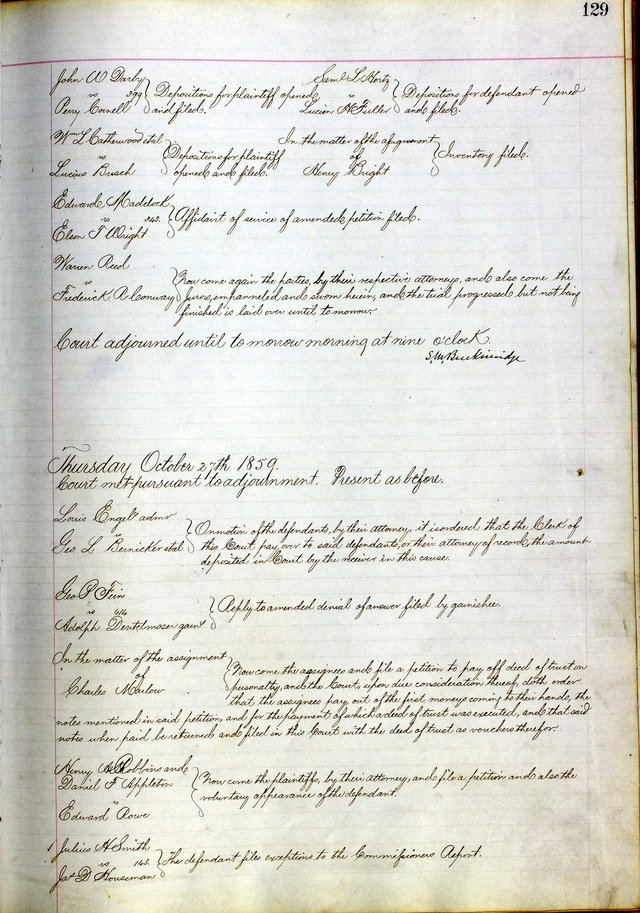 129
John W Darby
vs 399
Perry Cornell
Depositions for plaintiff opened
and filed.
Saml L Hertz
vs
Lucien H Fuller
Depositions for defendant opened
and filed.
Wm L Catherwood et al
vs
Lucius Busch
Depositions for plaintiff
opened and filed.
In the matter of the assignment
of
Henry Bright
Inventory filed.
Edward Maddock
vs 343.
Elson T Wright
Affidavit of service of amended petition filed.
Warren Reed
vs
Frederick R Conway
Now come again the parties, by their respective attorneys, and also come the
Jurors, empanneled and sworn herein, and the trial progressed but not being
finished is laid over until to morrow.
Court adjourned until to morrow morning at nine o'clock.
S.M. Breckinridge
Thursday October 27th 1859.
Court met pursuant to adjournment. Present as before.
Louis Engel admr
vs
Geo L Bernicker et al
On motion of the defendants, by their attorney, it is ordered that the Clerk of
this Court pay over to said defendants, or their attorney of record, the amount
deposited in Court by the receiver in this cause.
Geo P Fein
vs 414
Adolph garn
Reply to amended denial of answer filed by garnishee.
In the matter of the assignment
of
Charles Marlow
Now come the assignees and file a petition to pay off deed of trust on
personalty, and the Court, upon due consideration thereof, doth order
that the assignees pay, out of the first moneys coming to their hands, the
notes mentioned in said petition, and for the payment of which a deed of trust was executed, and that said
notes when paid be returned and filed in this Court with the deed of trust as vouchers therefor.
Henry A Robbins and
Daniel F Appleton
vs
Edward Rowe
Now come the plaintiffs, by their attorney, and file a petition and also the
voluntary appearance of the defendant.
Julius H Smith
vs 143.
Jas D Houseman
The defendant files exceptions to the Commissioners Report.